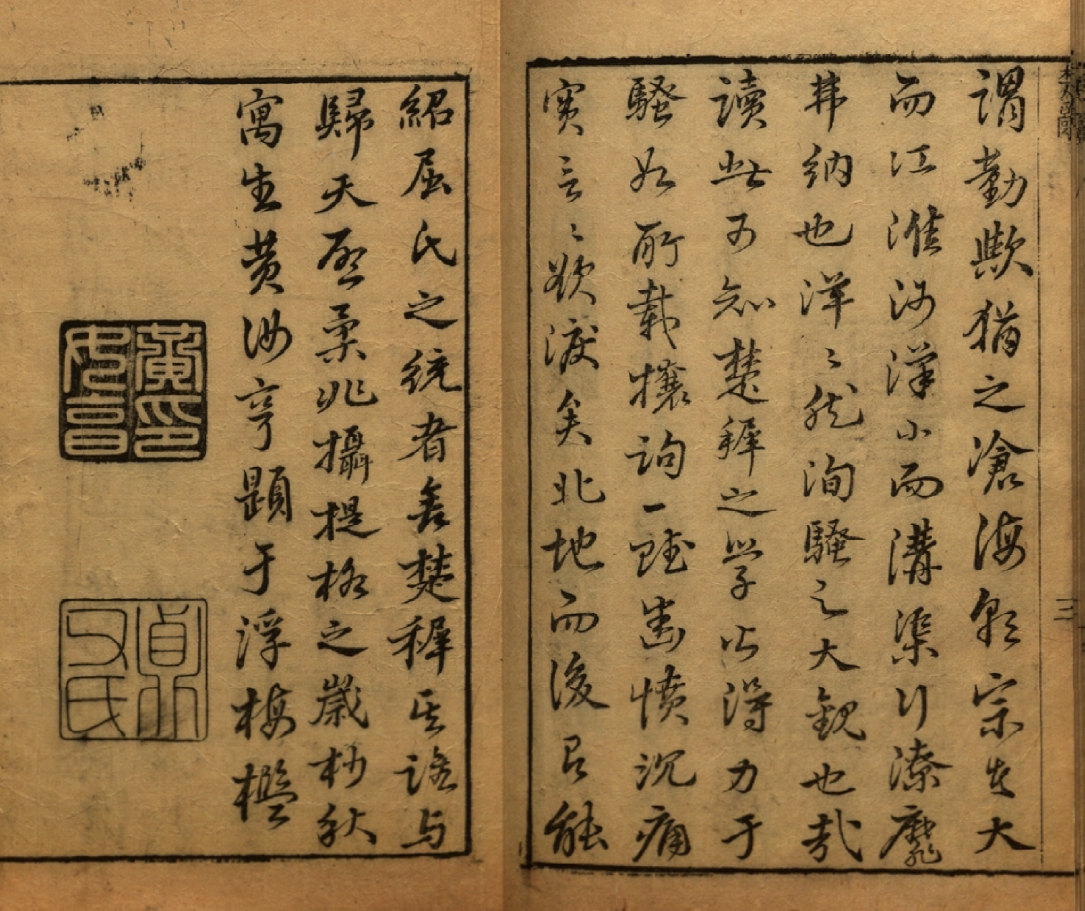 謂勤歟猶之滄海朝宗其大
而江淮河漢小而溝渠行潦靡
弗納也洋〻然洵騷之大觀也哉
讀此可知楚穉之學得力于
騷如所載攘詢一賦幽憤沉痛
實言〻欲淚矣北地而後有能
三
紹屈氏之統者舍楚穉其誰與
歸天啟柔兆攝提格之歲杪秋
寓生黃汝亨題于浮梅檻
黃印汝亨
貞父氏